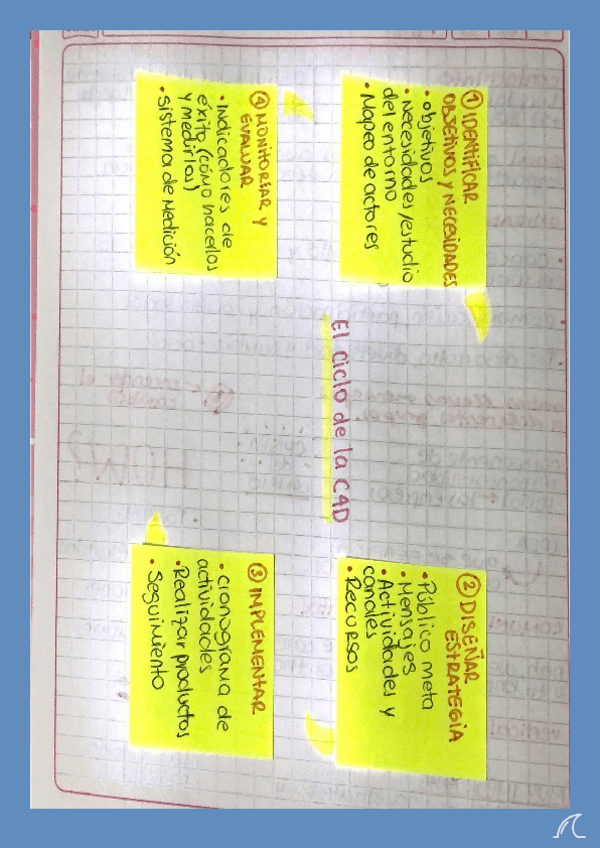 El ciclo de la CAD
① IDENTIFICAR
OBJETIVOS y NECESIDADES
• objetivos
• necesidades/estudio
del entorno
• Mapeo de actores
② DISEÑAR
ESTRATEGIA
• Público meta
• Mensajes
• Actividades y
canales
• Recursos
③ IMPLEMENTAR
• cronograma de
actividades
• Realizar productos
• Seguimiento
④ MONITOREAR Y
EVALUAR
• Indicadores de
éxito (cómo hacerlos
y medirlos)
• sistema de Medición